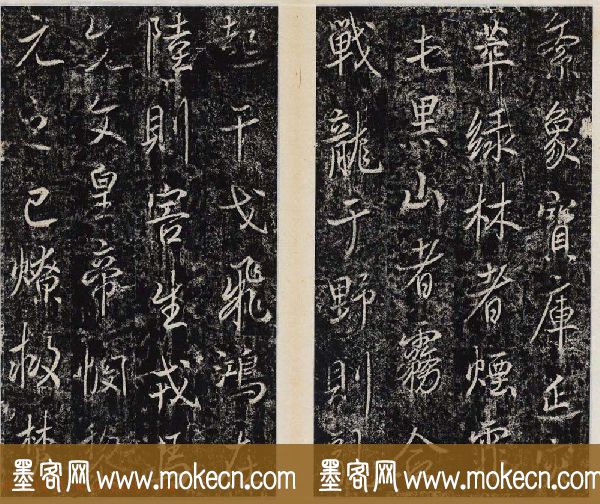 象寶庫
莽綠林者煙
屯黑山者霧合
戰龍于野則
起干戈飛鴻
陸則害生戎
先文皇帝憫
元之已燎救焚
墨客网 www.mokecn.com 墨客网 www.mokecn.com